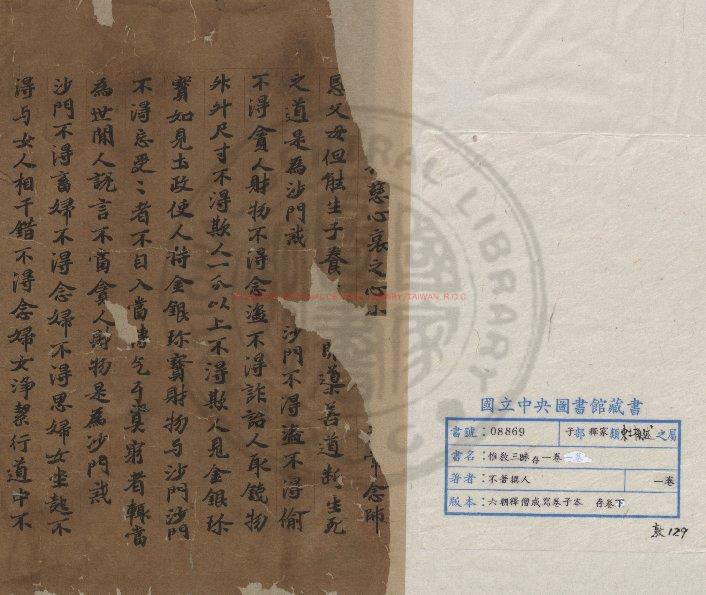 慈心哀之心
念師
恩父母但能生子養 導善道斷生死
之道是為沙門戒 沙門不得盜不得偷
不得貪人財物不得念盜不得詐詒人取錢物
升斗尺寸不得欺人一分以上不得欺人見金銀珎
寶如見土政使人持金銀珎寶財物与沙門沙門
不得忘受〻者不目入當傳乞与貧窮者輒當
為世間人說言不當貪人財物是為沙門戒
沙門不得畜婦不得念婦不得思婦女坐起不
得与女人相干錯不得念婦女淨潔行道中不
國立中央圖書館藏書
書號：08869 子部 釋家類 之屬
書名：惟教三昧存一卷
著者：不著撰人 一卷
版本：六朝釋僧成寫卷子本 存卷下
敦129
NATIONAL CENTRAL LIBRARY, TAIWAN, R.O.C